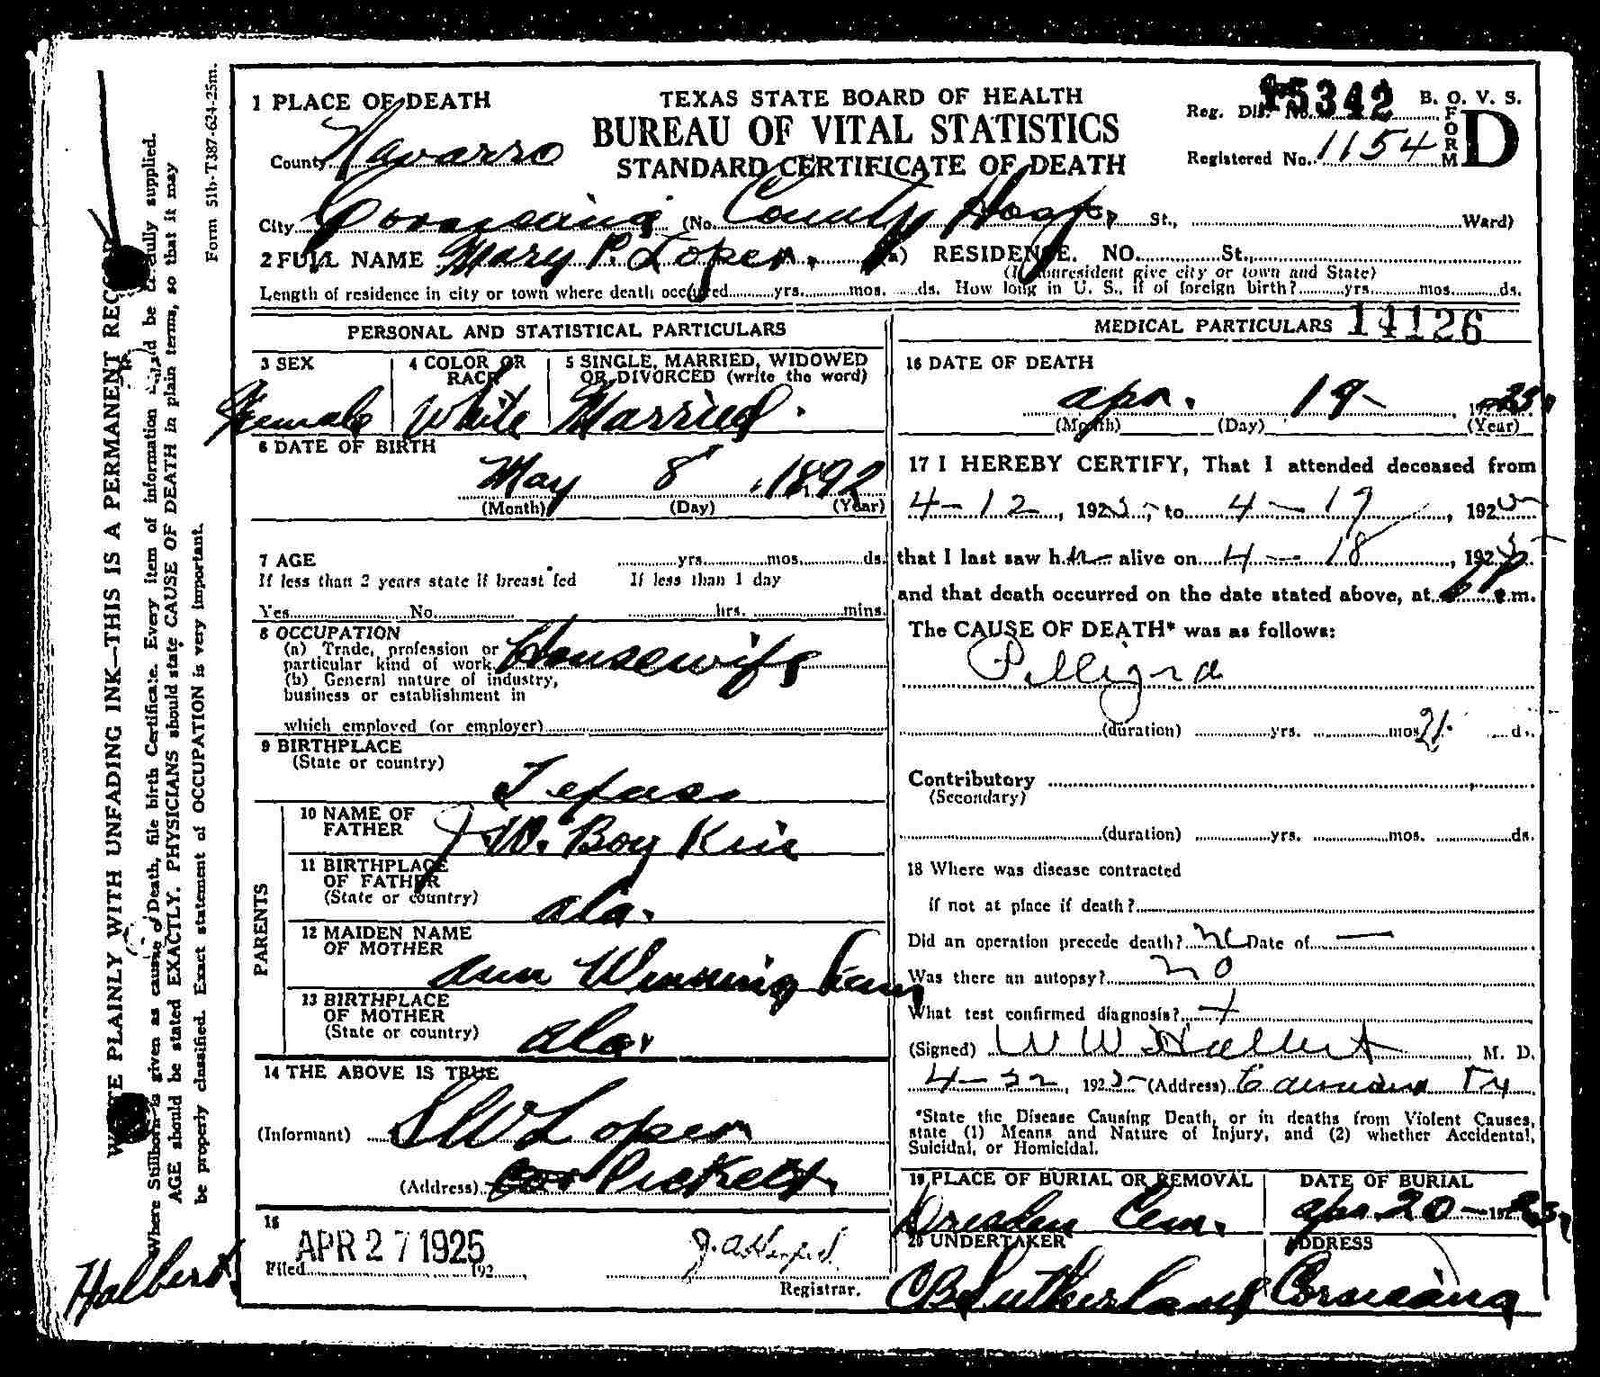 1 PLACE OF DEATH
TEXAS STATE BOARD OF HEALTH
BUREAU OF VITAL STATISTICS
STANDARD CERTIFICATE OF DEATH
Reg. Dis. No. 15342 B. O. V. S.
FORM D
County Navarro
Registered No. 1154
City Corsicana (No. County Hosp. St., Ward)
2 FULL NAME Mary P. Loper. (a) RESIDENCE. NO. St.,
(If nonresident give city or town and State)
Length of residence in city or town where death occurred yrs. mos. ds. How long in U. S., if of foreign birth? yrs. mos. ds.
PERSONAL AND STATISTICAL PARTICULARS
3 SEX
Female
4 COLOR OR RACE
White
5 SINGLE, MARRIED, WIDOWED
OR DIVORCED (write the word)
Married.
6 DATE OF BIRTH
May 8 1892
(Month) (Day) (Year)
7 AGE yrs. mos. ds.
If less than 2 years state if breast fed If less than 1 day
Yes No hrs. mins.
8 OCCUPATION
(a) Trade, profession or
particular kind of work Housewife
(b) General nature of industry,
business or establishment in
which employed (or employer)
9 BIRTHPLACE
(State or country)
Texas
PARENTS
10 NAME OF
FATHER J. W. Boy Kin
11 BIRTHPLACE
OF FATHER
(State or country) ala.
12 MAIDEN NAME
OF MOTHER
ann Winning ham
13 BIRTHPLACE
OF MOTHER
(State or country) ala.
14 THE ABOVE IS TRUE
(Informant) S W Loper
(Address) Pickett.
15
Filed APR 27 1925 192
Registrar.
MEDICAL PARTICULARS 14126
16 DATE OF DEATH
apr. 19- 1925.
(Month) (Day) (Year)
17 I HEREBY CERTIFY, That I attended deceased from
4-12, 1925, to 4-19, 1925
that I last saw her alive on 4-18, 1925
and that death occurred on the date stated above, at m.
The CAUSE OF DEATH* was as follows:
Pelligra
(duration) yrs. mos. 21. ds.
Contributory
(Secondary)
(duration) yrs. mos. ds.
18 Where was disease contracted
if not at place if death?
Did an operation precede death? no Date of —
Was there an autopsy? no
What test confirmed diagnosis?
(Signed) W W Halbert, M. D.
4-22, 1925 (Address) Tx
*State the Disease Causing Death, or in deaths from Violent Causes,
state (1) Means and Nature of Injury, and (2) whether Accidental,
Suicidal, or Homicidal.
19 PLACE OF BURIAL OR REMOVAL
Dresden Cem.
DATE OF BURIAL
apr. 20- 1925,
20 UNDERTAKER
CB Sutherland
ADDRESS
Corsicana
WRITE PLAINLY WITH UNFADING INK—THIS IS A PERMANENT RECORD
Where Stillborn is given as cause of Death, file birth Certificate. Every item of information should be carefully supplied.
AGE should be stated EXACTLY. PHYSICIANS should state CAUSE OF DEATH in plain terms, so that it may
be properly classified. Exact statement of OCCUPATION is very important.
Form 51b-T387-624-25m.
Halbert